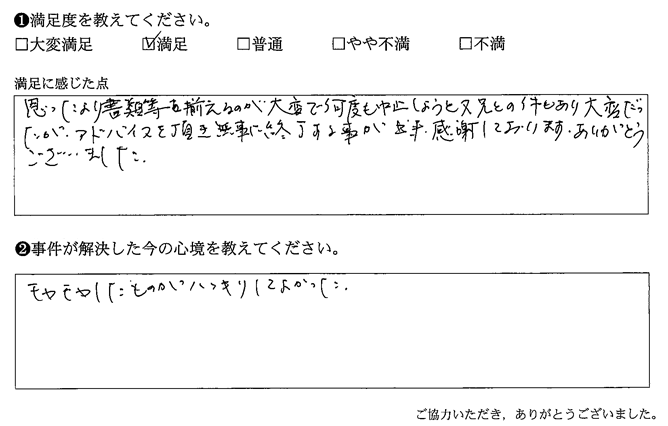 ❶満足度を教えてください。
□大変満足 ☑満足 □普通 □やや不満 □不満
満足に感じた点
思ったより書類等を揃えるのが大変で何度も中止しようと又兄との件もあり大変だっ
たが、アドバイスを頂き無事に終了する事が出来、感謝しております。ありがとう
ございました。
❷事件が解決した今の心境を教えてください。
モヤモヤしたものがハッキリしてよかった。
ご協力いただき，ありがとうございました。